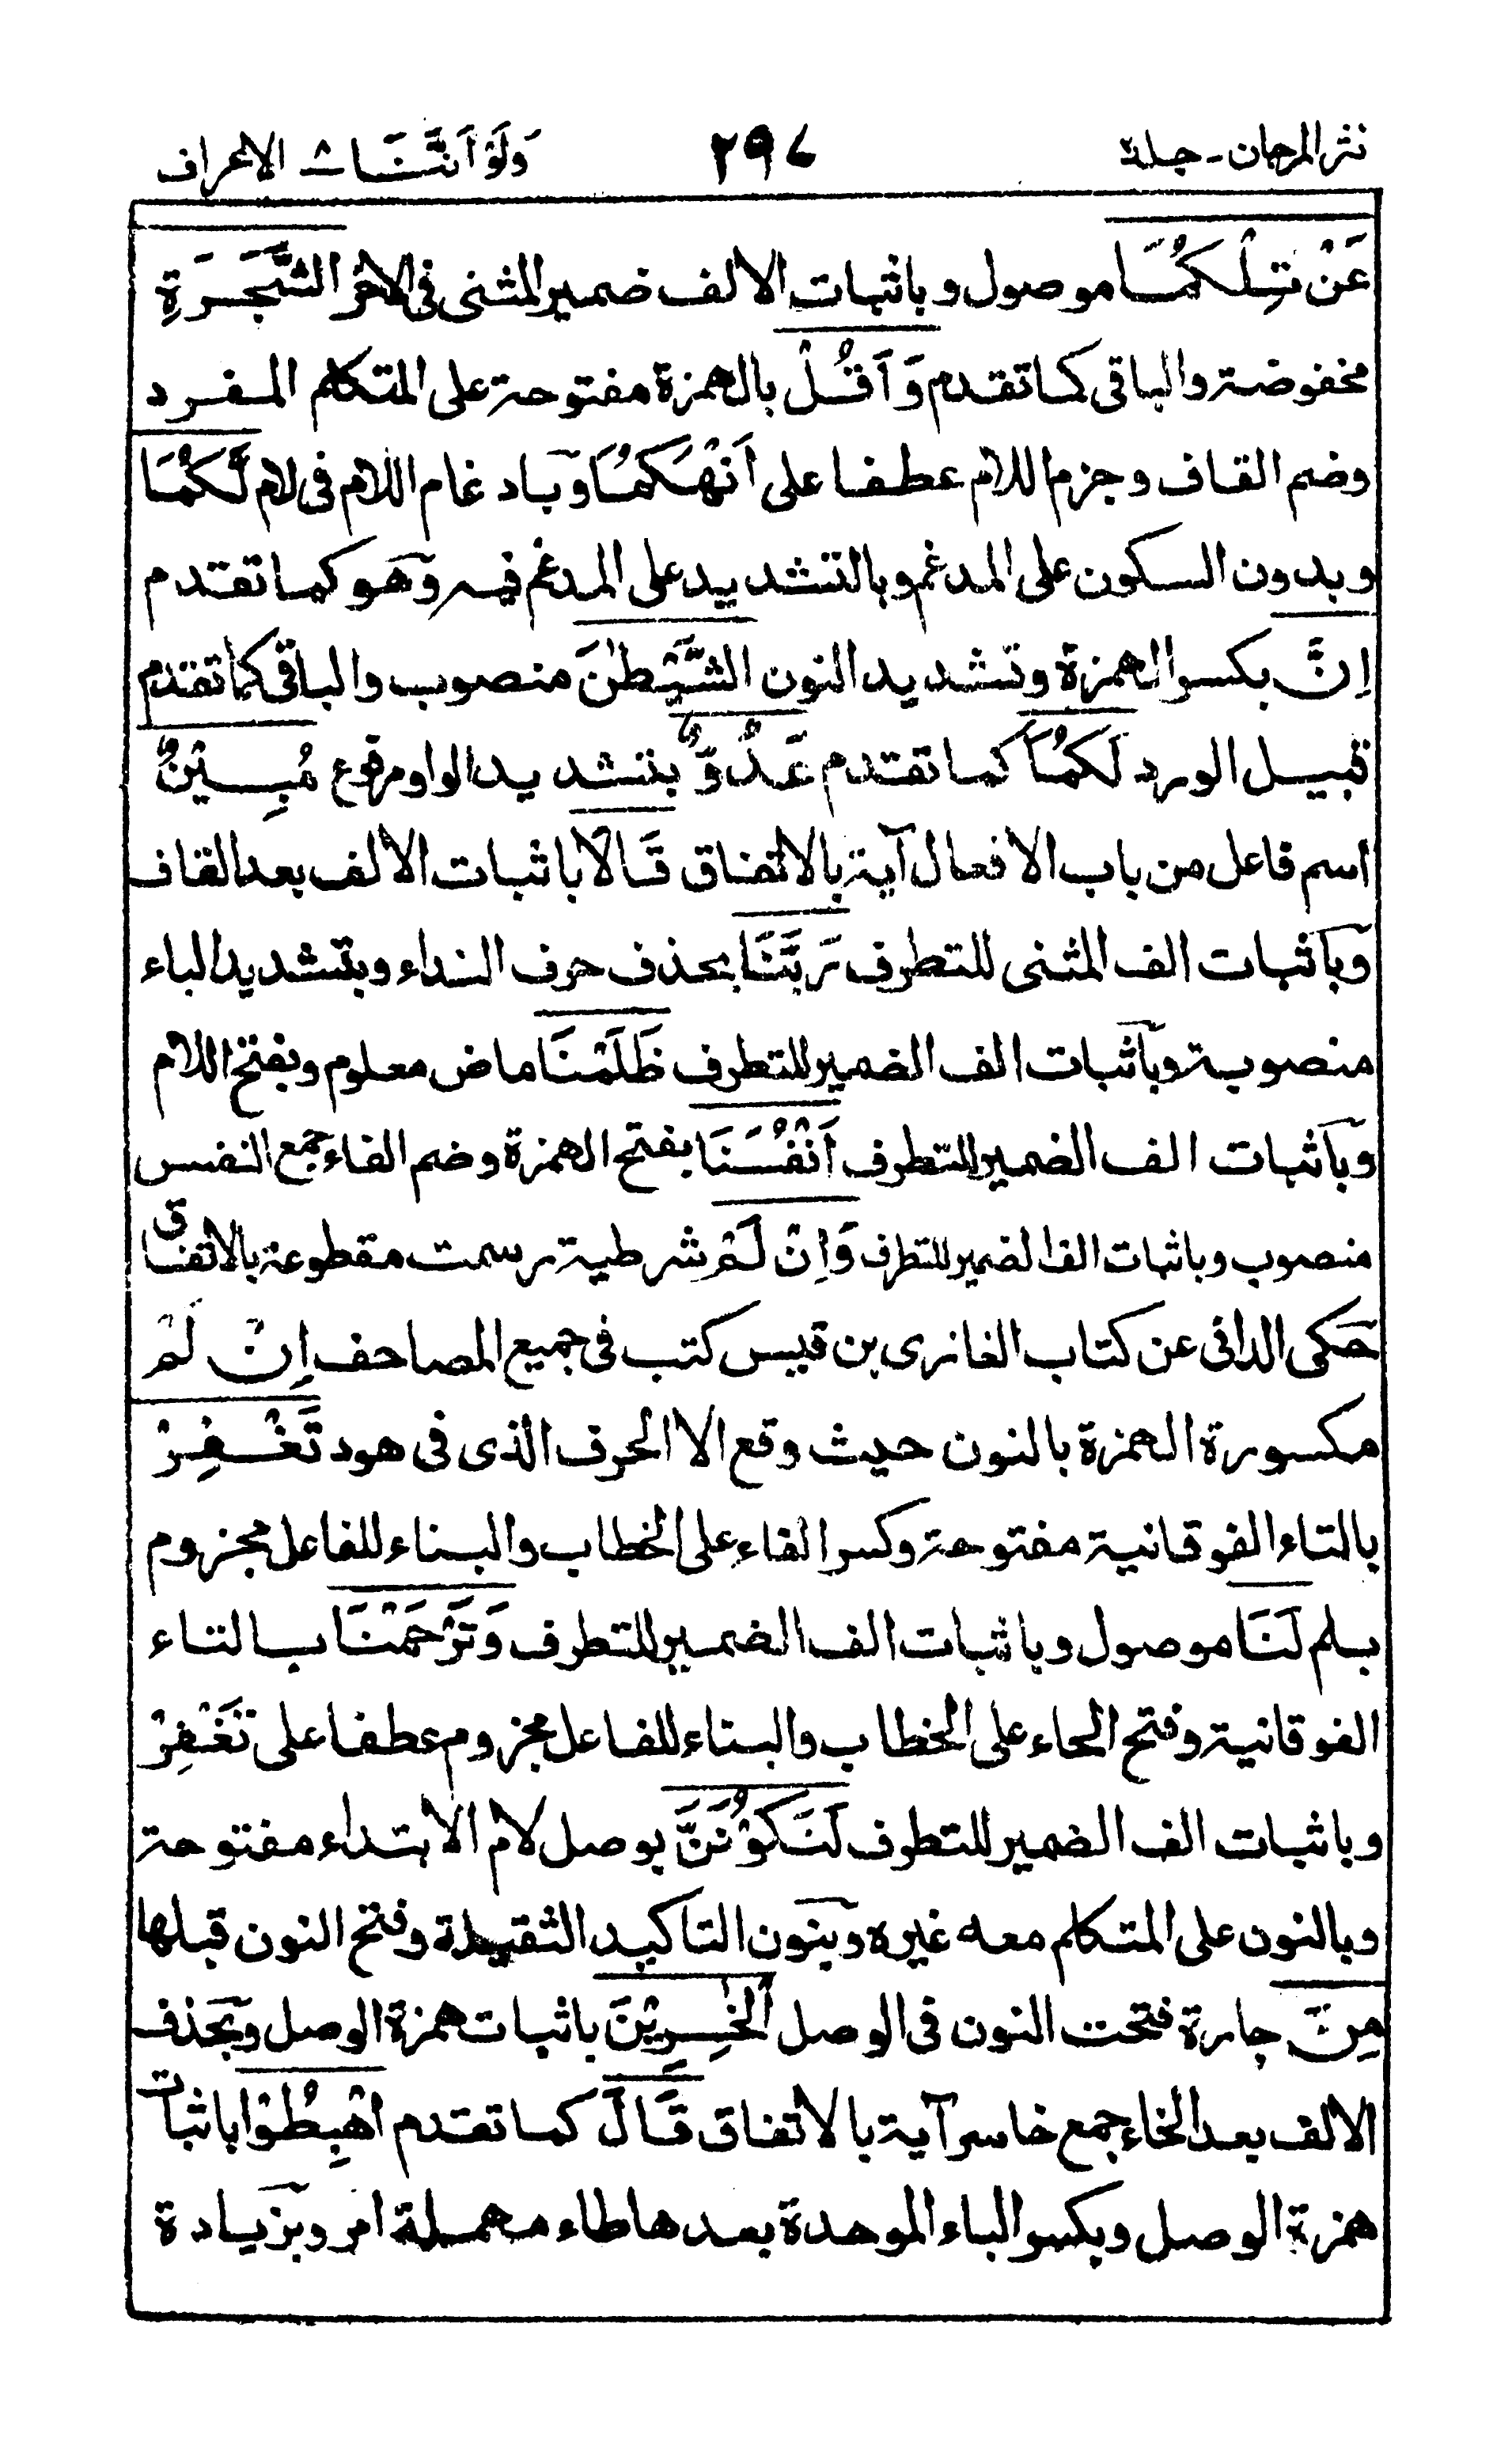 نثر المرجان - جلد ٢٩٧ وَلَوْ اَنَّنَا ٨ الاعراف
عَنْ تِلْكُمَا موصول وباثبات الالف ضمير المثنى فى الاخر الشَّجَرَةِ
مخفوضة والباقى كما تقدم وَاَقُلْ بالهمزة مفتوحة على المتكلم المفرد
وضم القاف وجزم اللام عطفا على اَنْهَكُمَا وبادغام اللام فى لام لَّكُمَا
وبدون السكون على المدغم وبالتشديد على المدغم فيه وهو كما تقدم
اِنَّ بكسر الهمزة وتشديد النون الشَّيْطٰنَ منصوب والباقى كما تقدم
قبيل الورد لَكُمَا كما تقدم عَدُوٌّ بتشديد الواو مرفوع مُّبِيْنٌ
اسم فاعل من باب الافعال آية بالاتفاق قَالَا باثبات الالف بعد القاف
وباثبات الف المثنى للتطرف رَبَّنَا بحذف حرف النداء وبتشديد الباء
منصوبة وباثبات الف الضمير للتطرف ظَلَمْنَا ماض معلوم وبفتح اللام
وباثبات الف الضمير للتطرف اَنْفُسَنَا بفتح الهمزة وضم الفاء جمع النفس
منصوب وباثبات الف الضمير للتطرف وَاِنْ لَّمْ شرطية رسمت مقطوعة بالاتفاق
حكى الدانى عن كتاب الغازى بن قيس كتب فى جميع المصاحف اِنْ لَمْ
مكسورة الهمزة بالنون حيث وقع الا الحرف الذى فى هود تَغْفِرْ
بالتاء الفوقانية مفتوحة وكسر الفاء على الخطاب والبناء للفاعل مجزوم
بلم لَنَا موصول وباثبات الف الضمير للتطرف وَتَرْحَمْنَا بالتاء
الفوقانية وفتح الحاء على الخطاب والبناء للفاعل مجزوم عطفا على تَغْفِرْ
وباثبات الف الضمير للتطرف لَنَكُوْنَنَّ بوصل لام الابتداء مفتوحة
وبالنون على المتكلم معه غيره وبنون التاكيد الثقيلة وفتح النون قبلها
مِنَ جارة فتحت النون فى الوصل الْخٰسِرِيْنَ باثبات همزة الوصل وبحذف
الالف بعد الخاء جمع خاسر آية بالاتفاق قَالَ كما تقدم اهْبِطُوْا باثبات
همزة الوصل وبكسر الباء الموحدة بعدها طاء مهملة امر وبزيادة